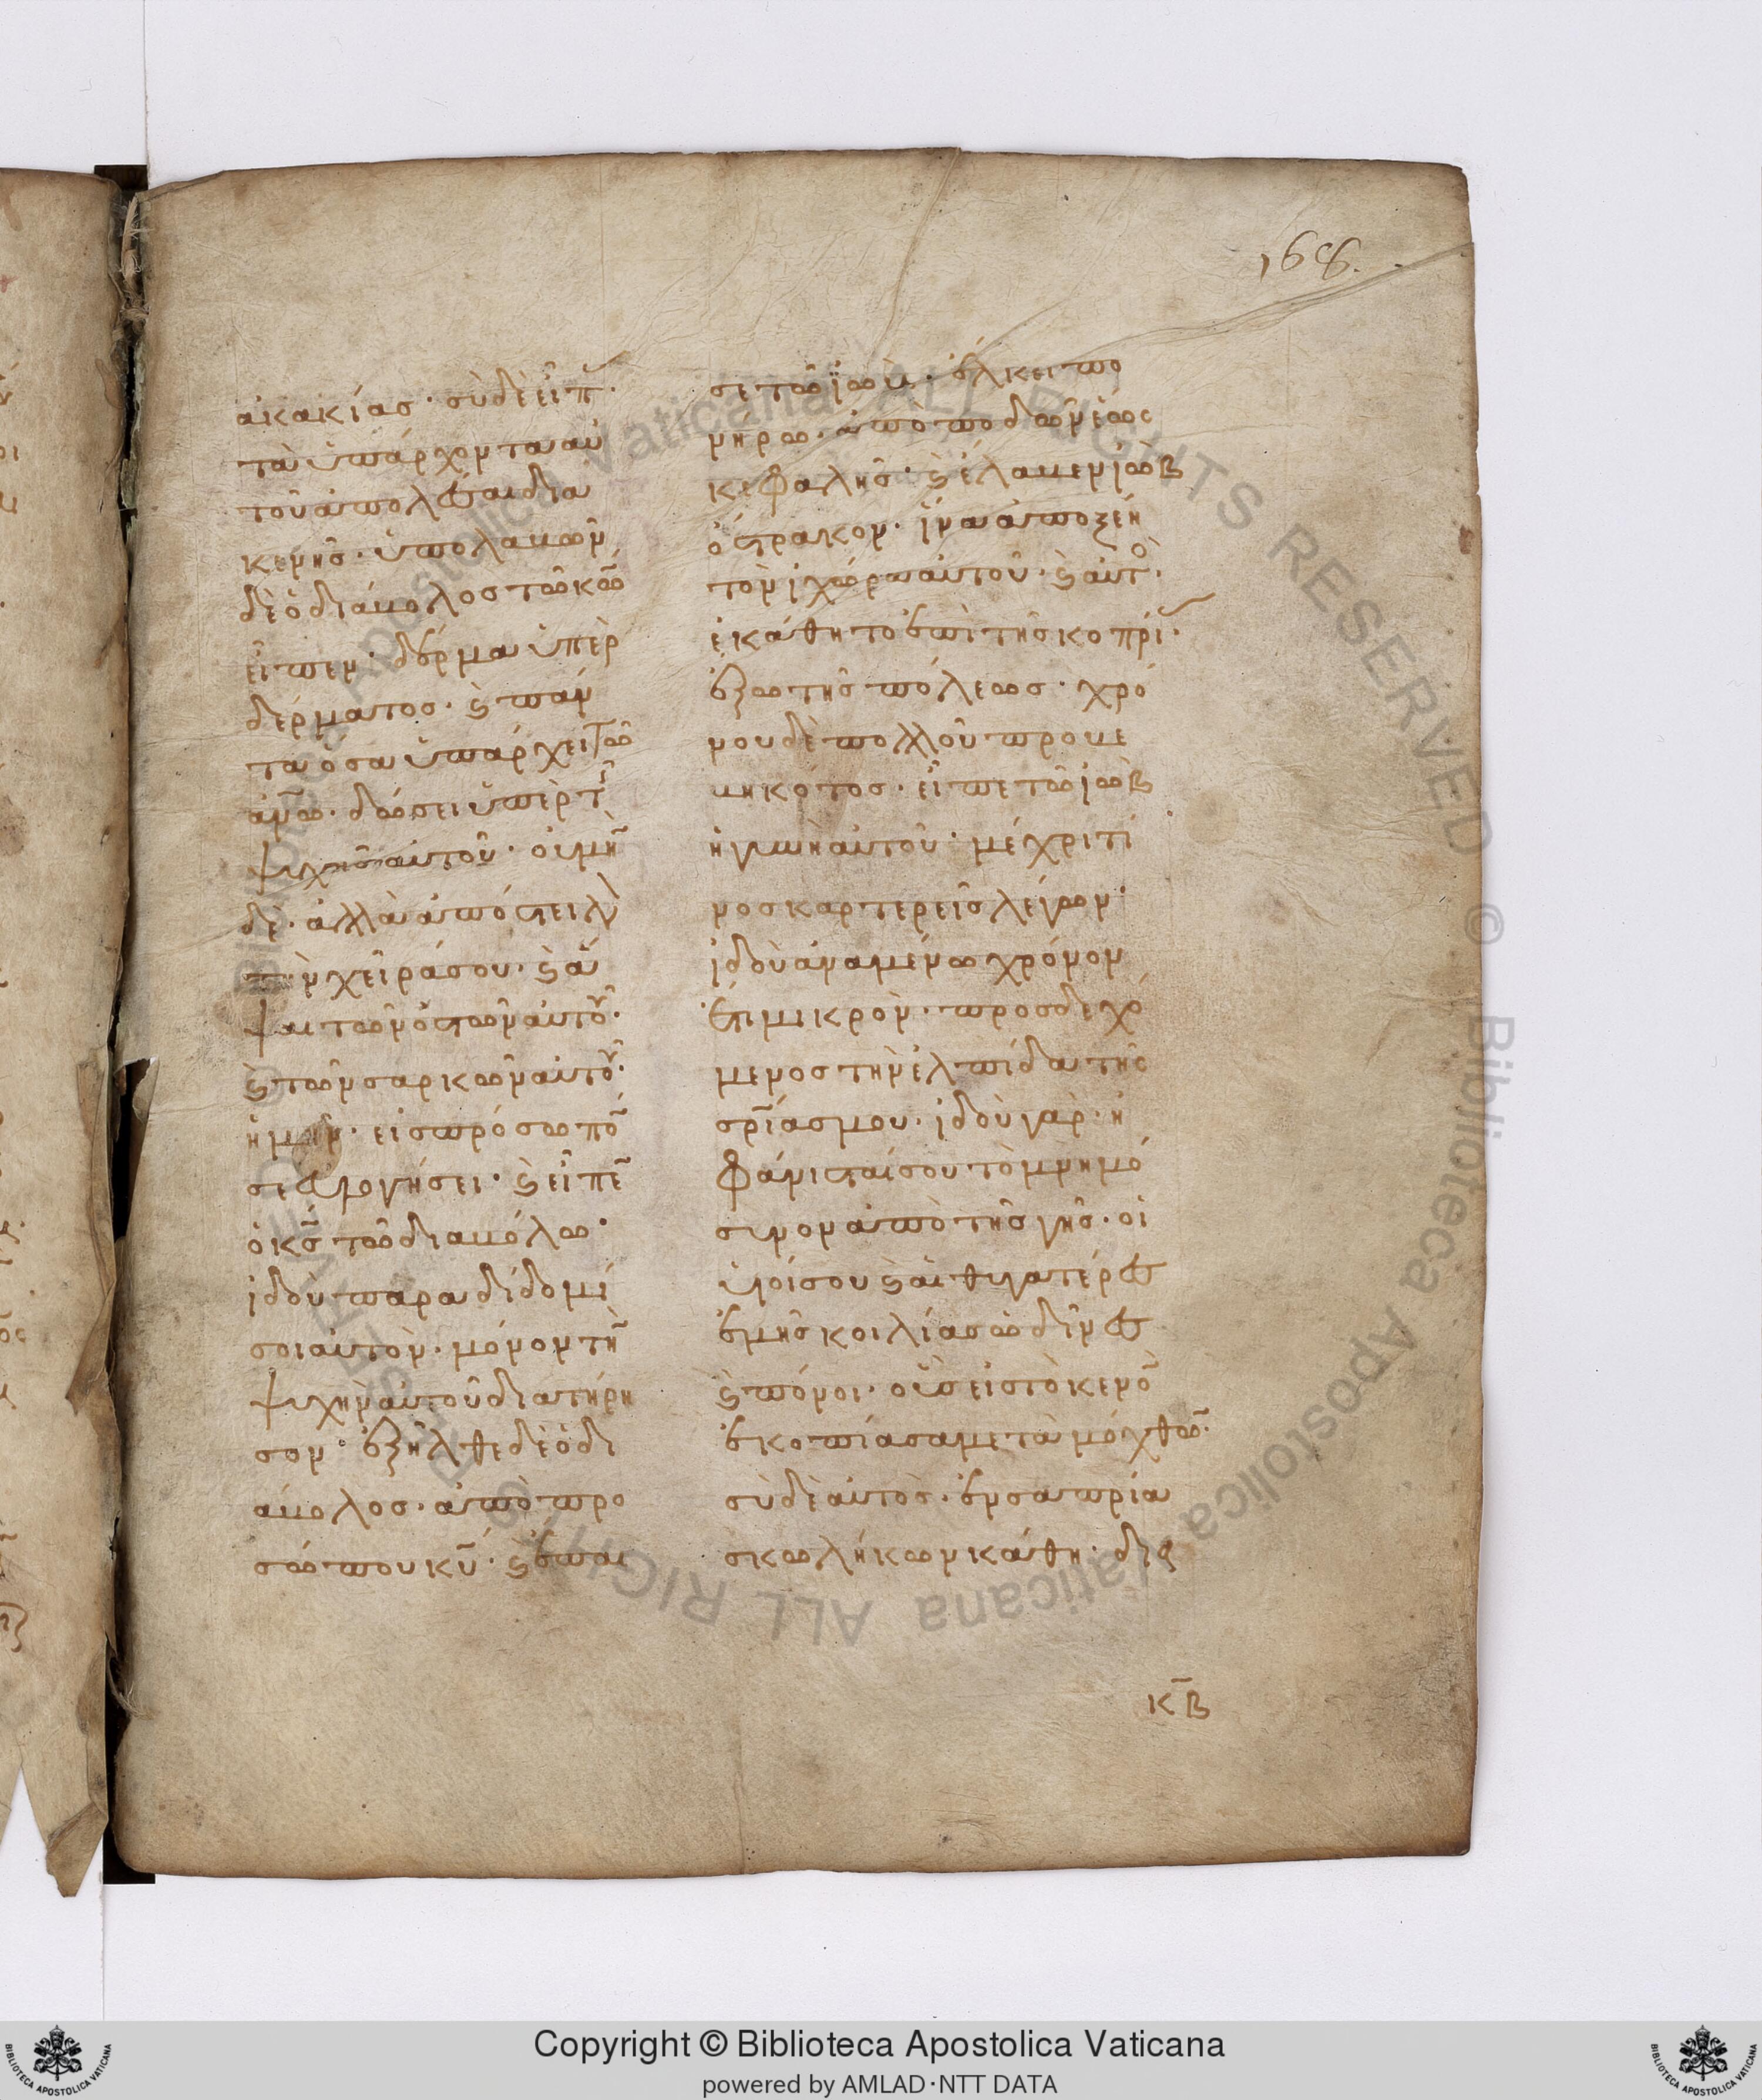 168.
ἀκακίας· σὺ δὲ εἶπ
τὰ ὑπάρχοντα αὐ
τοῦ ἀπολέσαι δια
κενῆς· ὑπολαβὼν
δὲ ὁ διάβολος τῶ κῶ
εἶπεν· δέρμα ὑπὲρ
δέρματος· ϗ πάν
τα ὅσα ὑπάρχει τῶ
ἀνῶ· δώσει ὑπὲρ τ
ψυχῆς αὐτοῦ· οὐ μὴ
δὲ· ἀλλὰ ἀπόστειλ
τὴν χεῖρά σου· ϗ ἅ
ψαι τῶν ὀστῶν αὐτοῦ·
ϗ τῶν σαρκῶν αὐτοῦ·
ἡ μὴν· εἰς πρόσωπό
σε εὐλογήσει· ϗ εἶπε
ὁ κς τῶ διαβόλω·
ἰδοὺ παραδίδομί
σοι αὐτόν· μόνον τὴ
ψυχὴν αὐτοῦ διατήρη
σον· ἐξῆλθε δὲ ὁ δι
άβολος· ἀπὸ προ
σώπου κυ· ϗ ἔπαι
σε τῶ ἰὼβ· ἕλκει πο
νηρῶ· ἀπὸ ποδῶν ἕως
κεφαλῆς· ϗ ἔλαβεν ἰὼβ
ὄστρακον· ἵνα ἀποξέη
τὸν ἰχῶρα αὐτοῦ· ϗ αὐτὸ·
ἐκάθητο ἐπὶ τῆς κοπρί·
ἔξω τῆς πόλεως· χρό
νου δὲ πολλοῦ προβε
βηκότος· εἶπε τῶ ἰὼβ
ἡ γυνὴ αὐτοῦ· μέχρι τί
νος καρτερεῖς λέγων·
ἰδοὺ ἀναμένω χρόνον
ἔτι μικρὸν· προσδεχό
μενος τὴν ἐλπίδα τῆς
σρίας μου· ἰδοὺ γὰρ· ἠ
φάνισταί σου τὸ μνημό
συνον ἀπὸ τῆς γῆς· οἱ
υἱοί σου ϗ αἱ θυγατέρες
ἐμῆς κοιλίας ὠδῖνες
ϗ πόνοι· οὓς εἰς τὸ κενὸ
ἐκοπίασα μετὰ μόχθω·
σὺ δὲ αὐτὸς· ἐν σαπρία
σκωλήκων κάθη· δια
κβ
Copyright © Biblioteca Apostolica Vaticana
powered by AMLAD·NTT DATA